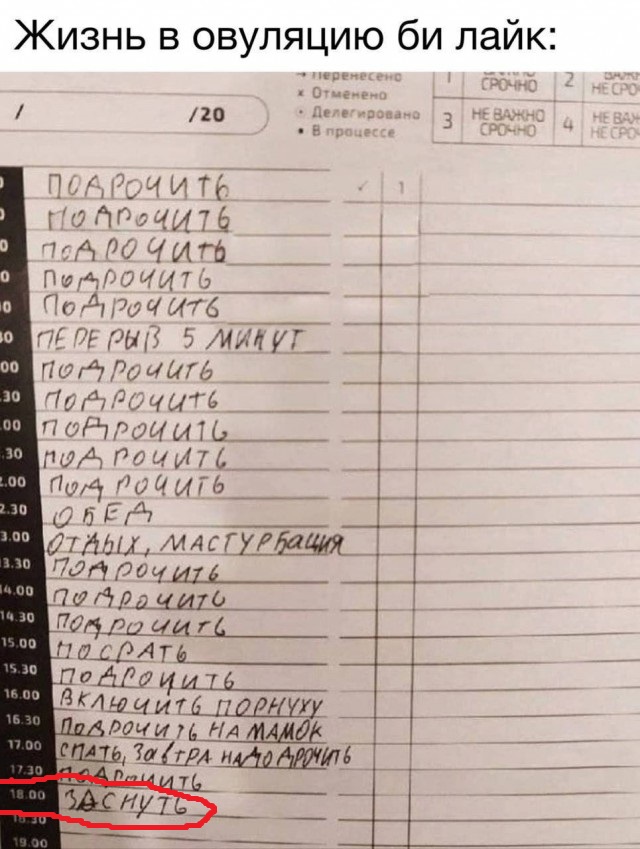 Жизнь в овуляцию би лайк:
→ Перенесено
× Отменено
Делегировано
• В процессе
/ /20
1 СРОЧНО 2
3 НЕ ВАЖНО СРОЧНО 4
ПОДРОЧИТЬ ✓ 1
ПОДРОЧИТЬ
ПОДРОЧИТЬ
ПОДРОЧИТЬ
ПОДРОЧИТЬ
ПЕРЕРЫВ 5 МИНУТ
ПОДРОЧИТЬ
ПОДРОЧИТЬ
ПОДРОЧИТЬ
ПОДРОЧИТЬ
ПОДРОЧИТЬ
ОБЕД
ОТДЫХ, МАСТУРБАЦИЯ
ПОДРОЧИТЬ
14.00 ПОДРОЧИТЬ
14.30 ПОДРОЧИТЬ
15.00 ПОСРАТЬ
15.30 ПОДРОЧИТЬ
16.00 ВКЛЮЧИТЬ ПОРНУХУ
16.30 ПОДРОЧИТЬ НА МАМОК
17.00 СПАТЬ, ЗАВТРА НАДО ДРОЧИТЬ
17.30 ПОДРОЧИТЬ
18.00 ЗАСНУТЬ
18.30
19.00